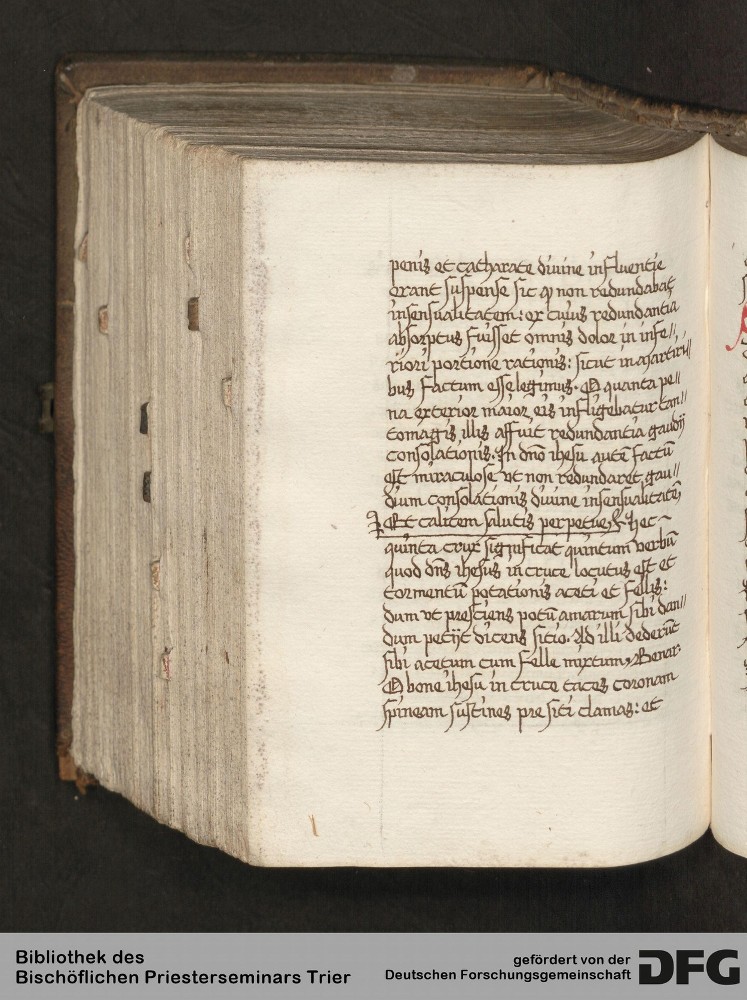 penis et catharate diuine influentie
erant suspense sic ꝙ non redundabāt
insensualitatem: ex cuius redundantia
absorptus fuisset omnis dolor in infe//
riori portione rationis: sicut in martiri//
bus factum esse legimus. O quanta pe//
na exterior maior eis infligebatur tan//
tomagis illis affuit redundantia gaudij
consolationis. In dn̄o ihesu autē factū
est miraculose vt non redundaret gau//
dium consolationis diuine insensualitatē
Et calicem salutis perpetue, hec
quinta crux significat quintum verbū
quod dn̄s ihesus in cruce locutus est et
tormentū potationis aceti et fellis:
dum vt presciens potū amarum sibi dan//
dum petijt dicens sitio. Ad illi dederūt
sibi acetum cum felle mixtum, Benar.
O bone ihesu in cruce taces coronam
spineam sustines pre siti clamas: et
Bibliothek des
Bischöflichen Priesterseminars Trier
gefördert von der
Deutschen Forschungsgemeinschaft
DFG